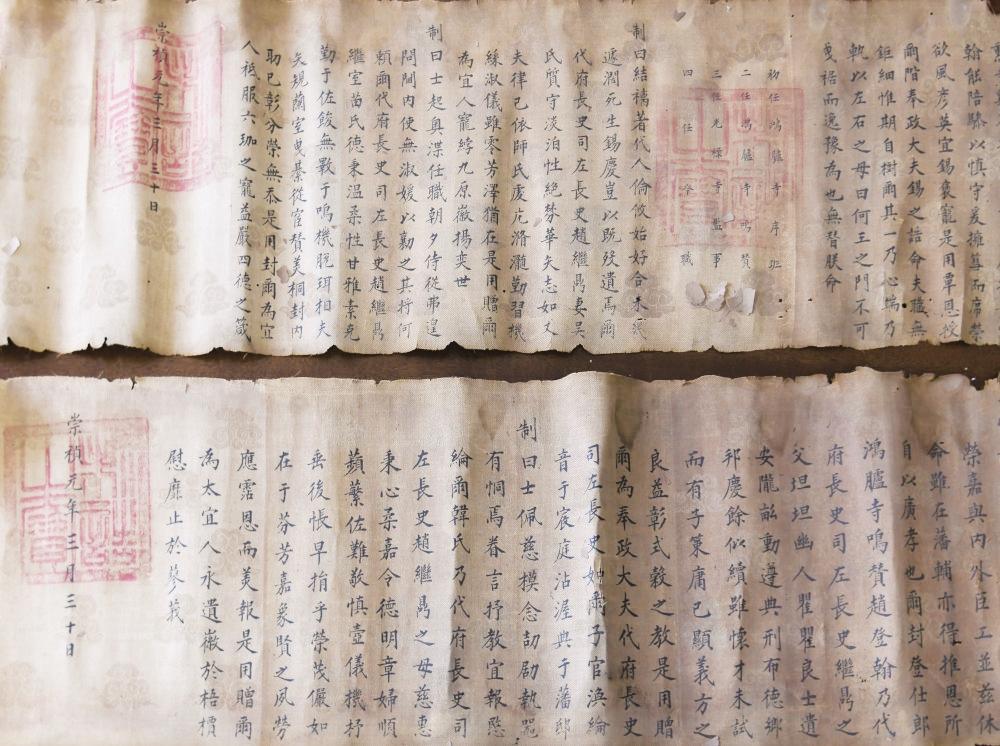 翰能陪驂以慎守爰擁篲而席榮
欲風彦英宜錫褒寵是用覃恩授
爾階奉政大夫錫之誥命夫職無
鉅細惟期自樹爾其一乃心端乃
軌以左右之毋曰何王之門不可
曳裾而逸豫為也無替朕命
初任鴻臚寺序班
二任鴻臚寺鳴贊
三任光祿寺監事
四任今職
制曰結褵著代人倫攸始好合未
遽澗死生錫慶豈以既歿遺焉爾
代府長史司左長史趙繼禼妻吳
氏質守淡泊性絶棼華矢志如乂
夫律己依師氏虔庀滫瀡勤習機
絲淑儀雖零芳澤猶在是用贈爾
為宜人寵綍九原徽揚奕世
制曰士起奥渫任職朝夕侍從弗遑
問閫内使無淑媛以勷之其将何
頼爾代府長史司左長史趙繼禼
繼室苗氏德秉温柔性甘雅素克
勤于佐餕無斁于鳴機脱珥相夫
矢規蘭室曳綦從宦贊美桐封内
助已彰分榮無忝是用封爾為宜
人袛服六珈之寵益嚴四德之箴
崇禎元年三月三十日
榮嘉與内外臣工並兹休
命雖在藩輔亦得推恩所
自以廣孝也爾封登仕郎
鴻臚寺鳴贊趙登翰乃代
府長史司左長史繼禼之
父坦坦幽人瞿瞿良士遺
安隴畝動遵典刑布德郷
邦慶餘似續雖懷才未試
而有子策庸已顯義方之
良益彰式穀之教是用贈
爾為奉政大夫代府長史
司左長史如爾子官渙綸
音于宸庭沾渥典于藩邸
制曰士佩慈模念劼劬執
有恫焉眷言抒教宜報愍
綸爾韓氏乃代府長史司
左長史趙繼禼之母慈惠
秉心柔嘉令德明章婦順
蘋蘩佐難敬慎壼儀機杼
垂後帳早捐乎榮茂儼如
在于芬芳嘉象賢之夙勞
應霑恩而美報是用贈爾
為太宜人永遺徽於梧檟
慰靡止於蓼莪
崇禎元年三月三十日